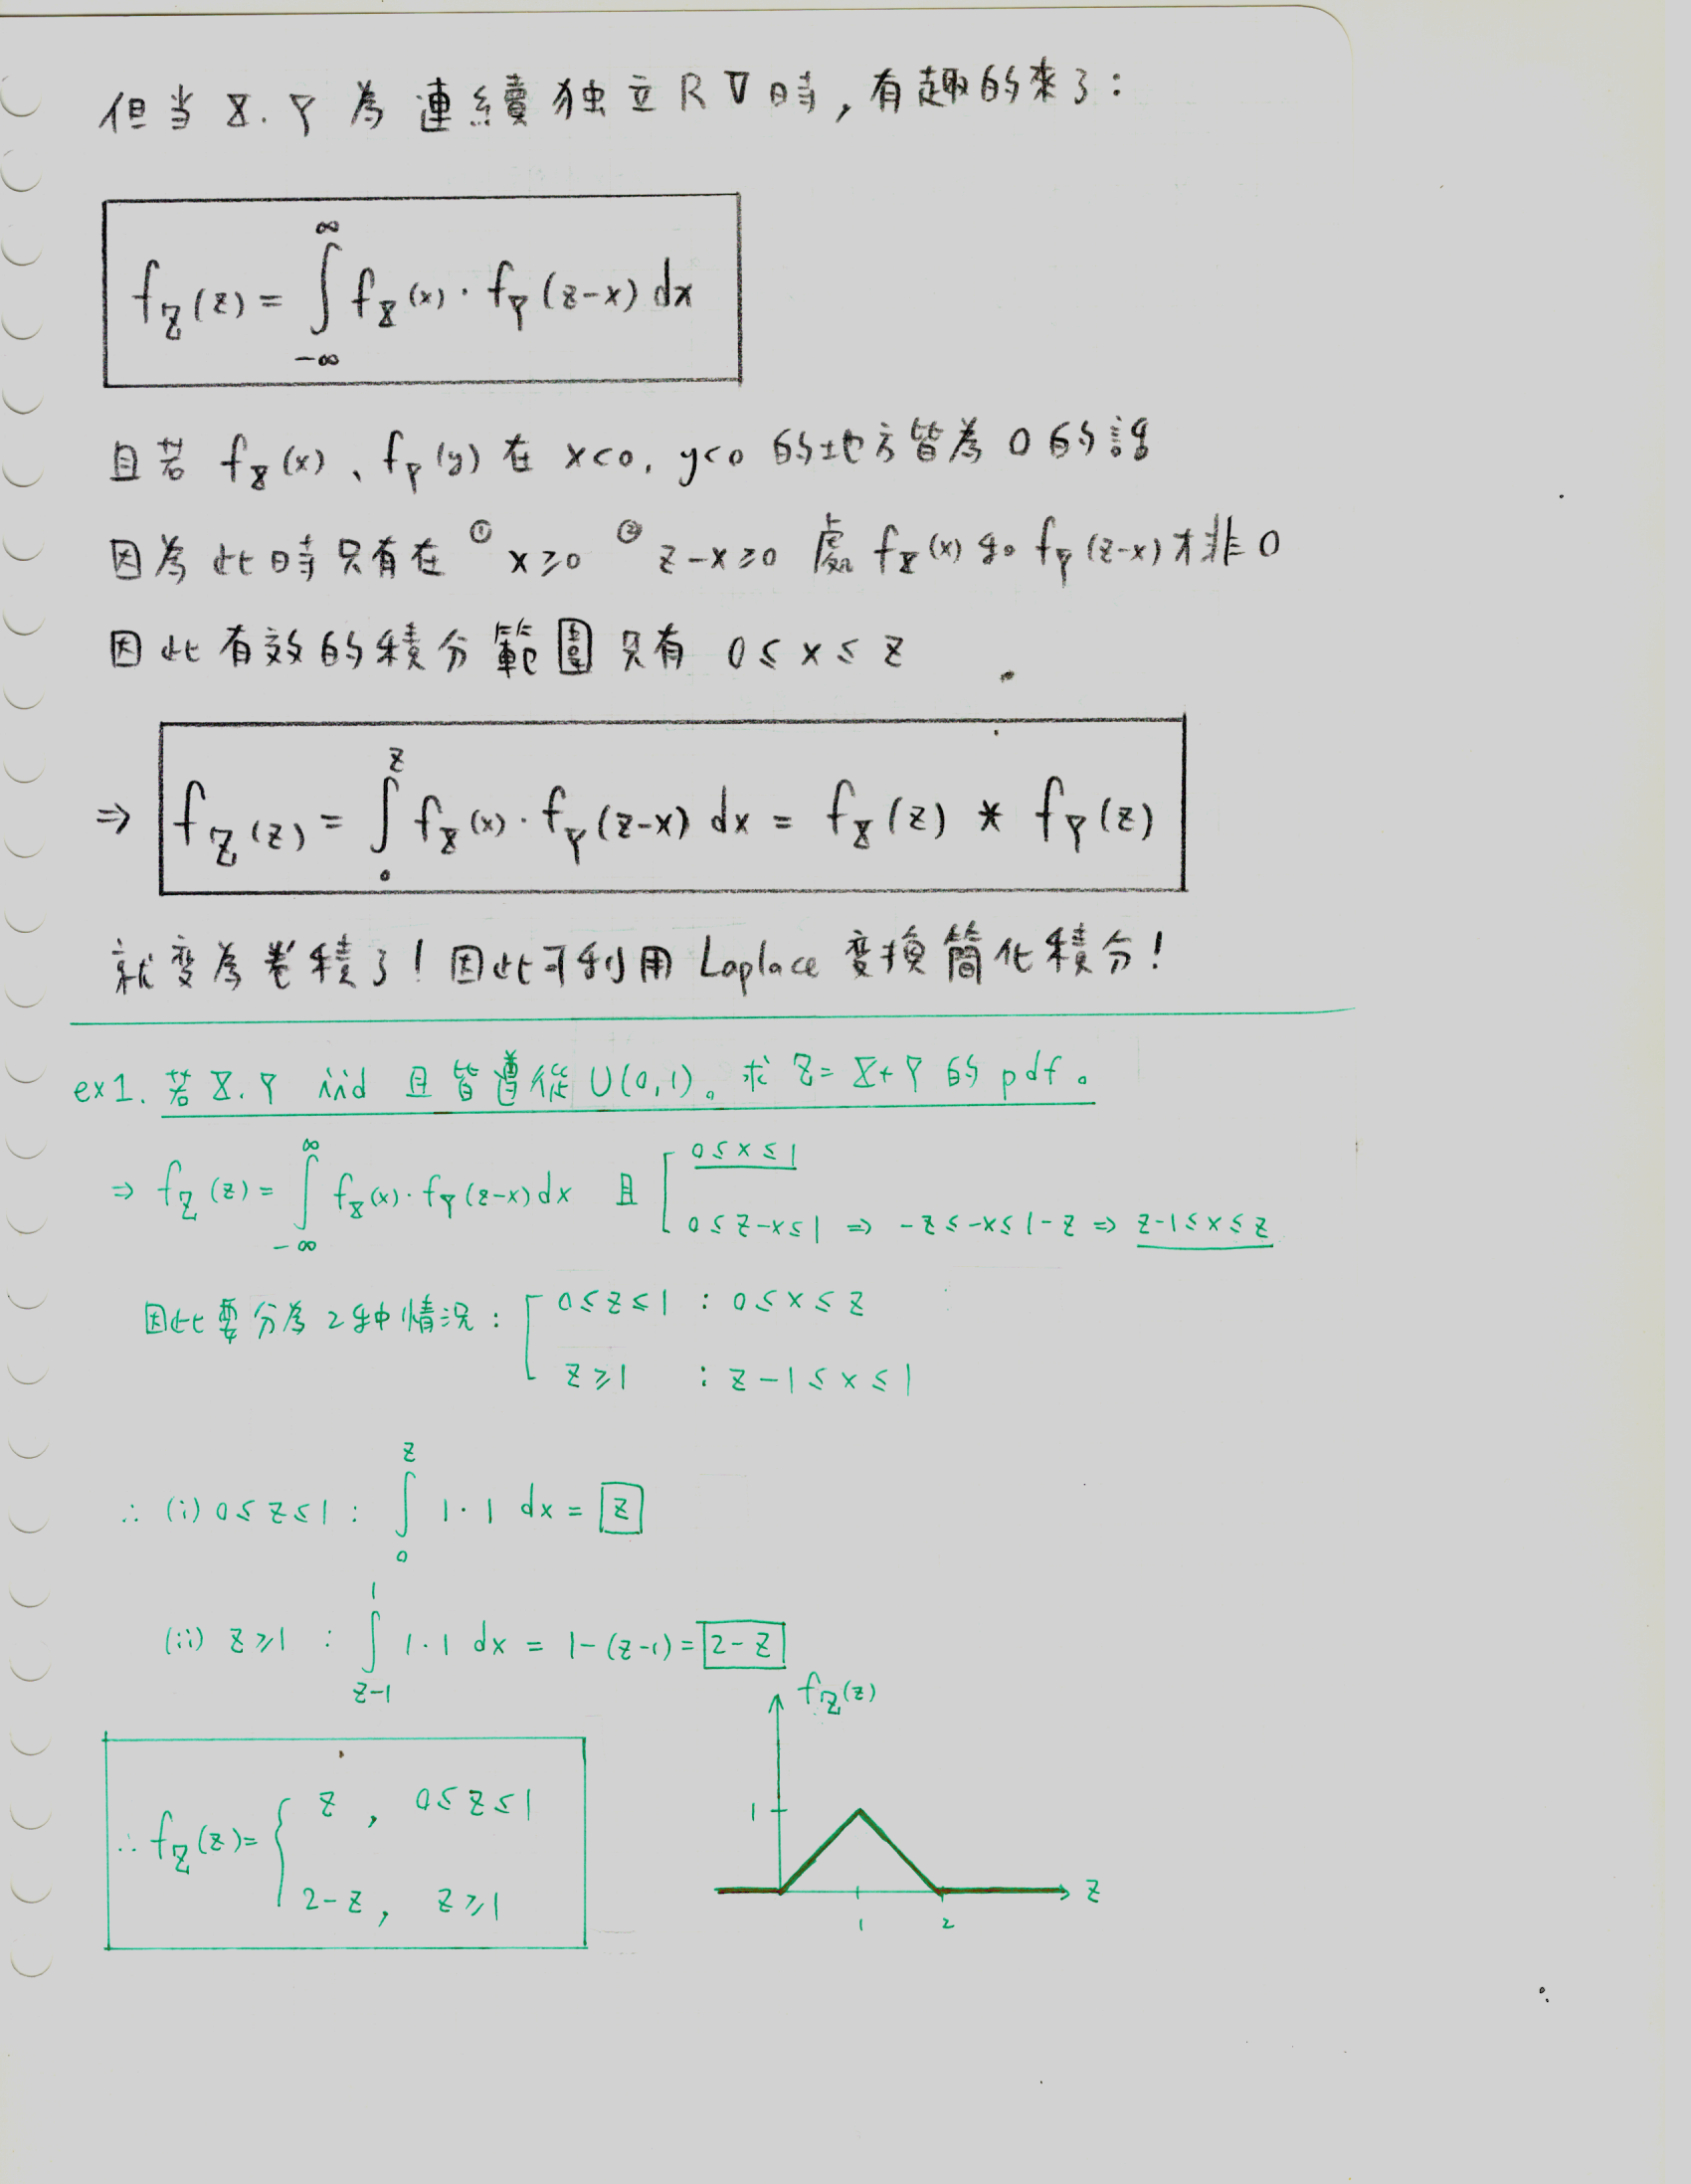 但当 X. Y 為連續独立RV時,有趣的來了:
f_Z(z) = ∫_{-∞}^{∞} f_X(x) · f_Y(z-x) dx
且若 f_X(x)、f_Y(y) 在 x<0, y<0 的地方皆為 0 的話
因為此時只有在 ① x≥0 ② z-x≥0 處 f_X(x) 和 f_Y(z-x) 才非 0
因此有效的積分範圍只有 0≤x≤z
⇒ f_Z(z) = ∫_0^z f_X(x) · f_Y(z-x) dx = f_X(z) * f_Y(z)
就变為卷積了!因此可利用 Laplace 变换簡化積分!
ex1. 若 X. Y iid 且皆遵從 U(0,1)。求 Z=X+Y 的 pdf。
⇒ f_Z(z) = ∫_{-∞}^{∞} f_X(x) · f_Y(z-x) dx 且 [ 0≤x≤1
0≤z-x≤1 ⇒ -z≤-x≤1-z ⇒ z-1≤x≤z
因此要分為2种情況: [ 0≤z≤1 : 0≤x≤z
z≥1 : z-1≤x≤1
∴ (i) 0≤z≤1 : ∫_0^z 1·1 dx = z
(ii) z≥1 : ∫_{z-1}^1 1·1 dx = 1-(z-1) = 2-z
∴ f_Z(z) = { z , 0≤z≤1
2-z , z≥1
f_Z(z)
1
z
1 2